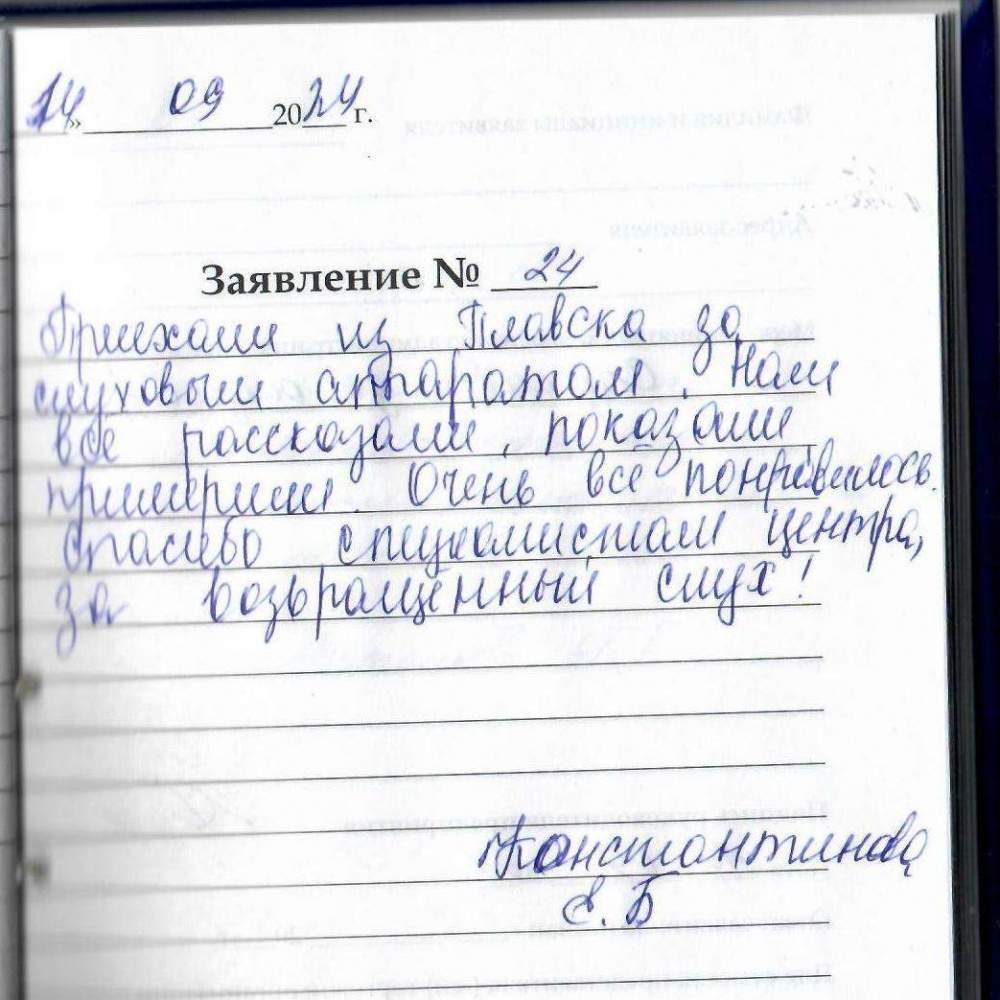 14 » 09 2024 г.
Заявление № 24
Приехали из Плавска за
слуховым аппаратом. Нам
все рассказали, показали
примерили. Очень все понравилось.
спасибо специалистам центра,
за возвращенный слух!
Константинова
Е. Б